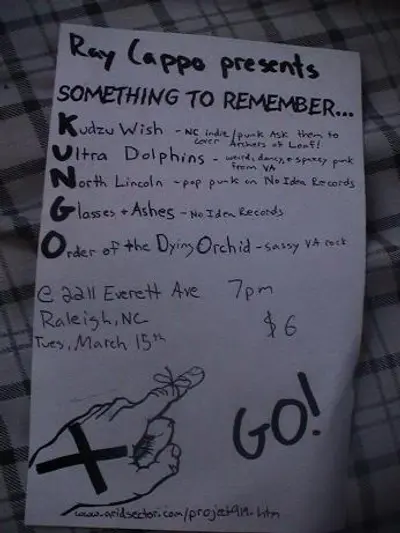 Ray Cappo presents
SOMETHING TO REMEMBER...
Kudzu Wish - NC indie/punk Ask them to
cover Archers of Loaf!
Ultra Dolphins - weird, dancy, + spazzy punk
from VA
North Lincoln - pop punk on No Idea Records
Glasses + Ashes - No Idea Records
Order of the Dying Orchid - sassy VA rock
@ 2211 Everett Ave 7pm
Raleigh, NC
$6
Tues, March 15th
GO!
X
www.aridsector.com/project919.htm